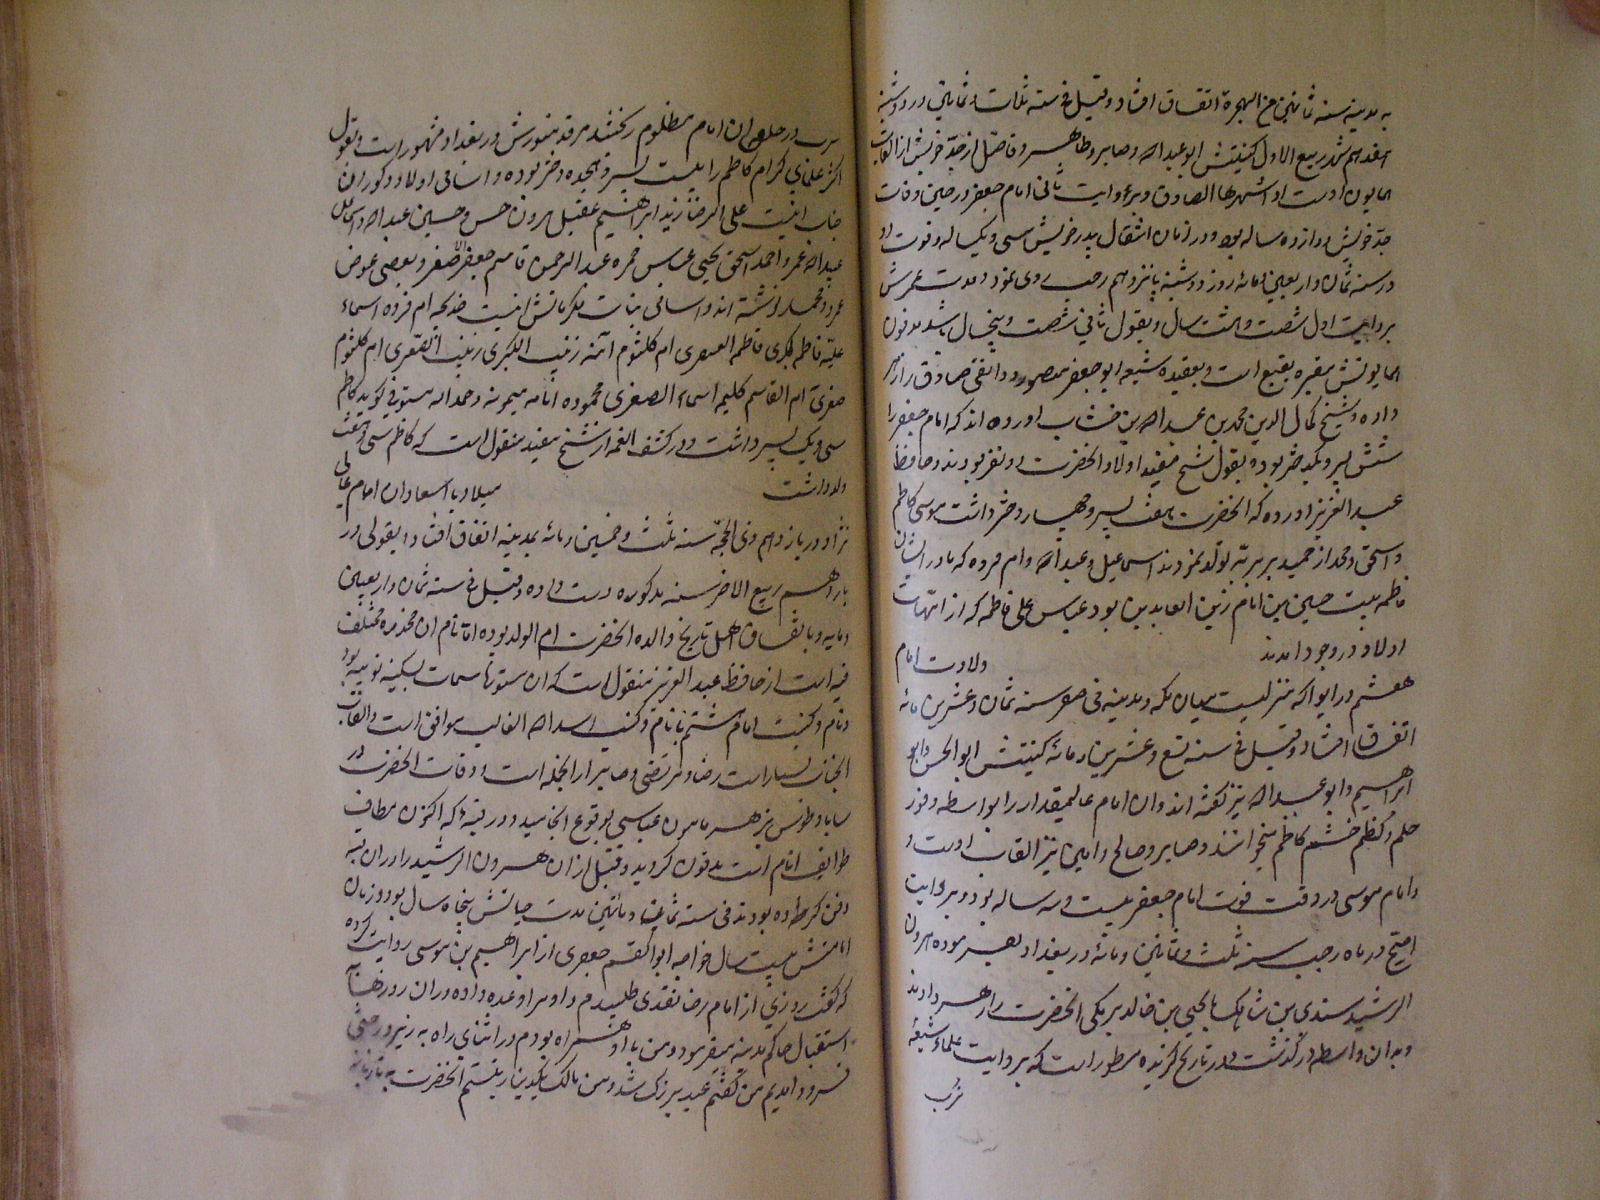 به مدینه سنه ثمانین من الهجرة اتفاق افتاد و قیل فی سنه ثلاث و ثمانین در روز دوشنبه
هفدهم شهر ربیع الاول کنیتش ابو عبد الله و صابر و طاهر و فاضل از جد خویش از القاب
همایون اوست و اشهرها الصادق و بروایت ثانی امام جعفر در حین وفات
جد خویش دوازده ساله بود و در زمان انتقال پدر خویش سی و یکساله و فوت او
در سنه ثمان و اربعین و مائه روز دوشنبه پانزدهم رجب روی نمود و مدت عمرش
بروایت اول شصت و هشت سال و بقول ثانی شصت و پنجسال باشد مدفون
همایونش مقبره بقیع است و بعقیده شیعه ابو جعفر منصور دوانقی صادق را زهر
داده و شیخ کمال الدین محمد بن عبد الله بن خشاب آورده اند که امام جعفر را
شش پسر و یکدختر بود و بقول شیخ مفید اولاد آنحضرت ده نفر بودند و حافظ
عبد العزیز آورده که آنحضرت هفت پسر و چهار دختر داشت موسی کاظم
و اسحق و محمد از حمیده بربریه تولد نمودند اسماعیل و عبد الله و ام فروه که مادر ایشان
فاطمه بنت حسین بن امام زین العابدین بود عباس علی فاطمه که از امهات
اولاد در وجود آمدند ولادت امام
هفتم در ابوا که منزلیست میان مکه و مدینه فی صفر سنه ثمان و عشرین مائه
اتفاق افتاد و قیل فی سنه تسع و عشرین و مائه کنیتش ابو الحسن و ابو
ابراهیم و ابو عبد الله نیز گفته اند و آن امام عالیمقدار را بواسطه وفور
حلم و کظم خشم کاظم میخوانند و صابر و صالح و امین نیز القاب اوست و
و امام موسی در وقت فوت امام جعفر بیست و سه ساله بود و بروایت
اصح در ماه رجب سنه ثلث و ثمانین و مائه در بغداد بفرموده هرون
الرشید سندی بن شاهک یا یحیی بن خالد برمکی آنحضرت را زهر دادند
و به آن واسطه درگذشت و در تاریخ گزیده مسطور است که بروایت علماء شیعه
سرب
سرب در حلق آن امام مظلوم ریختند مرقد منورش در بغداد مشهور است و بقول
اکثر علمای کرام کاظم را بیست پسر و هجده دختر بوده و اسامی اولاد ذکور آن
جناب اینست علی الرضا زید ابراهیم عقیل هرون حسن و حسین عبد الله و اسماعیل
عبید الله عمر و احمد اسحق یحیی عباس حمزه عبد الرحمن قاسم جعفر الاصغر و بعضی عوض
عمرو محمد نوشته اند و اسامی بنات مکرماتش اینست خدیجه ام فروه اسماء
علیه فاطمه کبری فاطمه الصغری ام کلثوم آمنه زینب الکبری زینب الصغری ام کلثوم
صغری ام القاسم کلیمه اسماء الصغری محموده امامه میمونه و حمد الله مستوفی گوید کاظم
سی و یک پسر داشت و در کشف الغمه از شیخ مفید منقول است که کاظم سی و هفت
ولد داشت میلاد با اسعاد آن امام عالی
نژاد در یازدهم ذی الحجه سنه ثلث و خمسین و مائه بمدینه اتفاق افتاد و بقولی در
یازدهم ربیع الاخر سنه مذکوره دست داده و قیل فی سنه ثمان و اربعین
و مایه و باتفاق اهل تاریخ والده آنحضرت ام الولد بوده اما نام آن مخدره مختلف
فیه است از حافظ عبد العزیز منقول است که آن ستوده سمات سکینه نوبیه بود
و نام و کنیت امام هشتم با نام و کنیت اسد الله الغالب موافق است و القاب
آنجناب بسیار است رضا و مرتضی و صابر از آنجمله است و وفات آنحضرت در
ساباد طوس بزهر مامون عباسی بوقوع انجامید و در قبه که اکنون مطاف
طوایف انام است مدفون گردید و قبل از آن هرون الرشید را در آن قبه
دفن کرده بودند فی سنه ثمان و مائتین مدت حیاتش پنجاه سال بود و زمان
امامتش بیست سال خواجه ابو القسم جعفری از ابراهیم بن موسی روایت کرده
که گفت روزی از امام رضا نقدی طلبیدم و او مرا وعده داده در آن روزها
استقبال حاکم مدینه میفرمود و من با او همراه بودم در اثنای راه به زیر درختی
فرود آمدیم من گفتم عید نزدیک شد و من مالک یکدینار نیستم آنحضرت به تازیانه